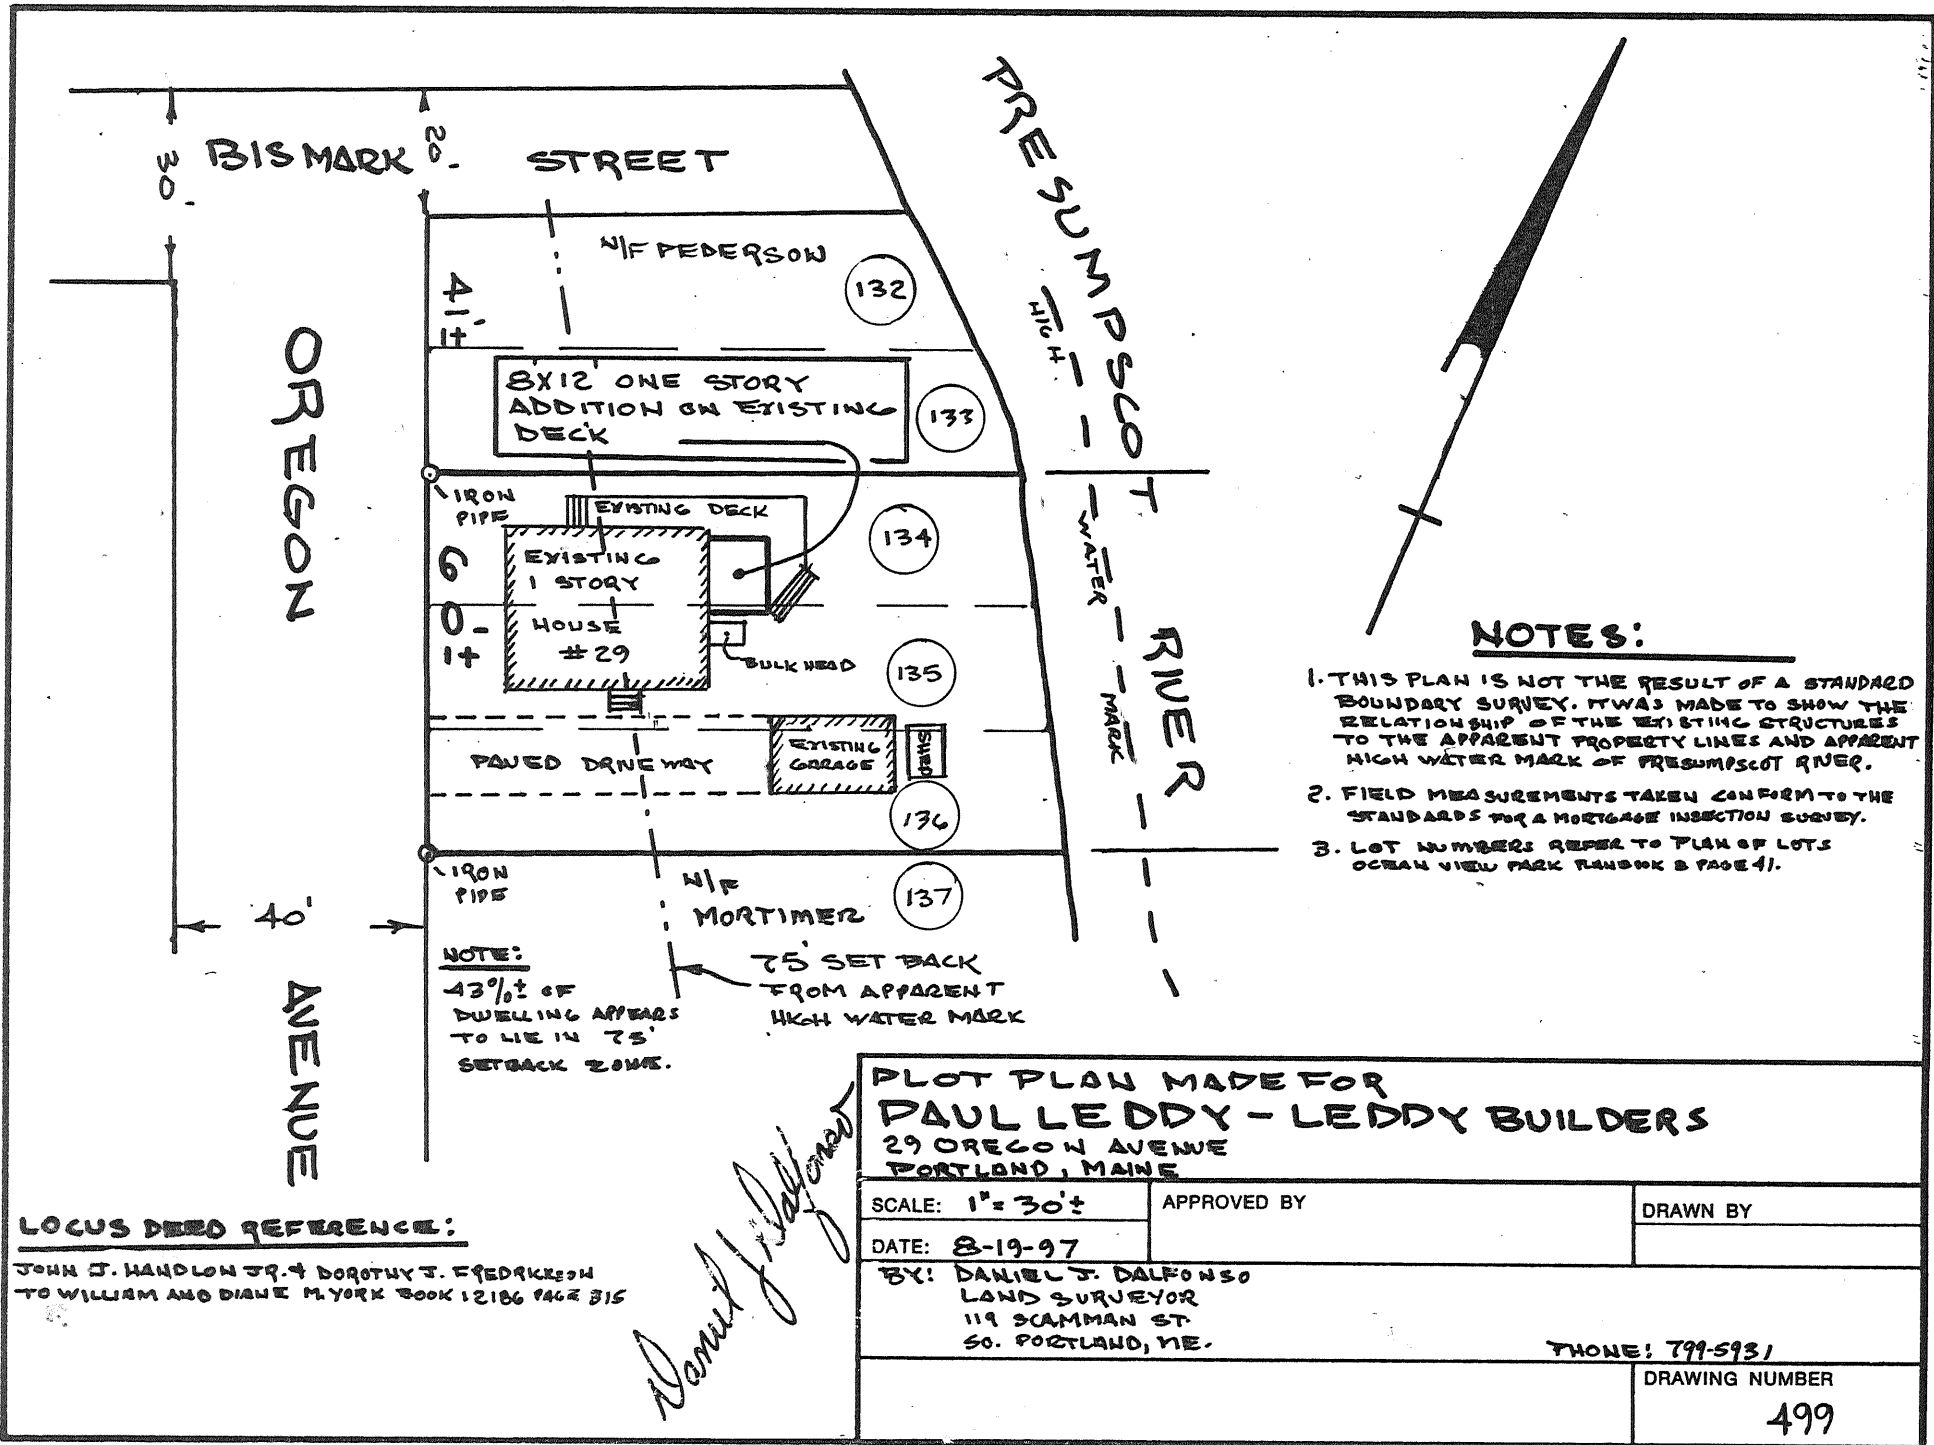 BISMARK STREET
20'
30'
N/F PEDERSON
132
41'±
8X12' ONE STORY
ADDITION ON EXISTING
DECK
133
PRESUMPSCOT RIVER
HIGH WATER MARK
OREGON AVENUE
IRON
PIPE
EXISTING DECK
134
60'±
EXISTING
1 STORY
HOUSE
#29
BULKHEAD
135
PAVED DRIVEWAY
EXISTING
GARAGE
SHED
136
IRON
PIPE
N/F
MORTIMER
137
40'
75' SET BACK
FROM APPARENT
HIGH WATER MARK
NOTE:
43%± OF
DWELLING APPEARS
TO LIE IN 75'
SETBACK ZONE.
NOTES:
1. THIS PLAN IS NOT THE RESULT OF A STANDARD
BOUNDARY SURVEY. IT WAS MADE TO SHOW THE
RELATIONSHIP OF THE EXISTING STRUCTURES
TO THE APPARENT PROPERTY LINES AND APPARENT
HIGH WATER MARK OF PRESUMPSCOT RIVER.
2. FIELD MEASUREMENTS TAKEN CONFORM TO THE
STANDARDS FOR A MORTGAGE INSECTION SURVEY.
3. LOT NUMBERS REFER TO PLAN OF LOTS
OCEAN VIEW PARK PLANBOOK 8 PAGE 41.
LOCUS DEED REFERENCE:
JOHN J. HANDLON JR. & DOROTHY J. FREDRICKSON
TO WILLIAM AND DIANE M. YORK BOOK 12186 PAGE 315
Daniel J Dalfonso
PLOT PLAN MADE FOR
PAUL LEDDY - LEDDY BUILDERS
29 OREGON AVENUE
PORTLAND, MAINE
SCALE: 1"= 30'±
APPROVED BY
DRAWN BY
DATE: 8-19-97
BY: DANIEL J. DALFONSO
LAND SURVEYOR
119 SCAMMAN ST.
SO. PORTLAND, ME.
PHONE: 799-5931
DRAWING NUMBER
499